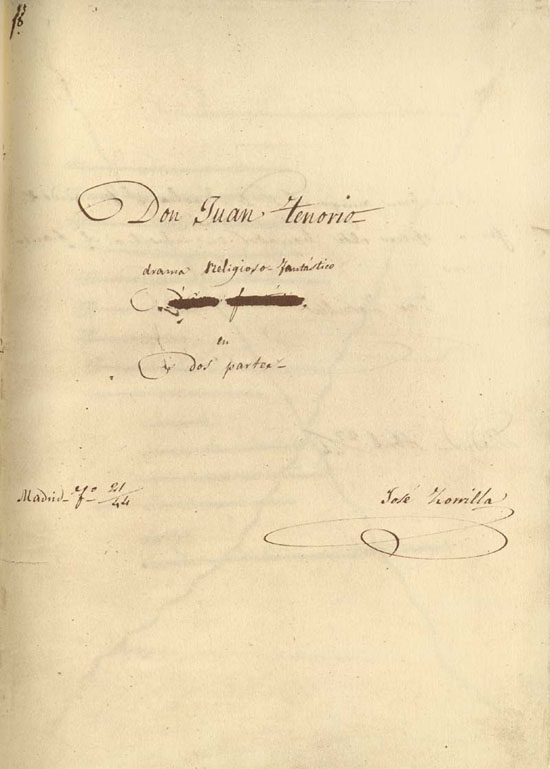 Don Juan Tenorio
drama Religioso-fantástico
en
dos partes
Madrid F.º 21/44
José Zorrilla